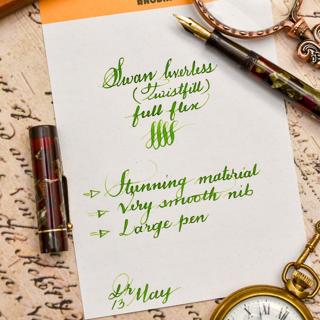 Swan leverless
(twistfill)
full flex
Stunning material
Very smooth nib
Large pen
13 May